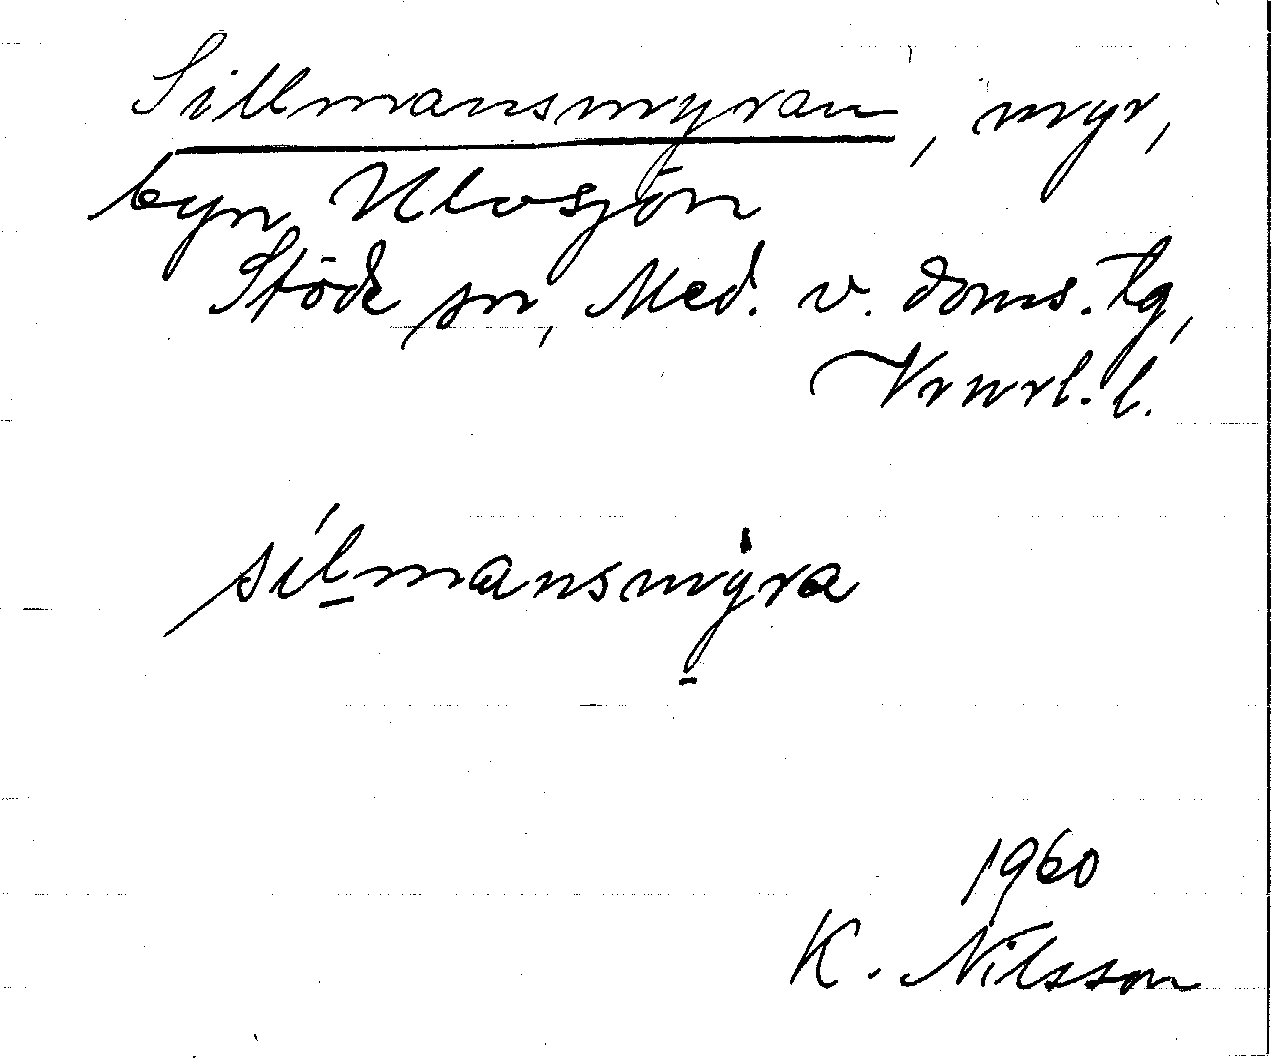 Sillmansmyran, myr,
byn Ulvsjön
Stöde sn, Med. v. doms. tg,
Vrnrl. l.
sílmansmỳra
1960
K. Nilsson